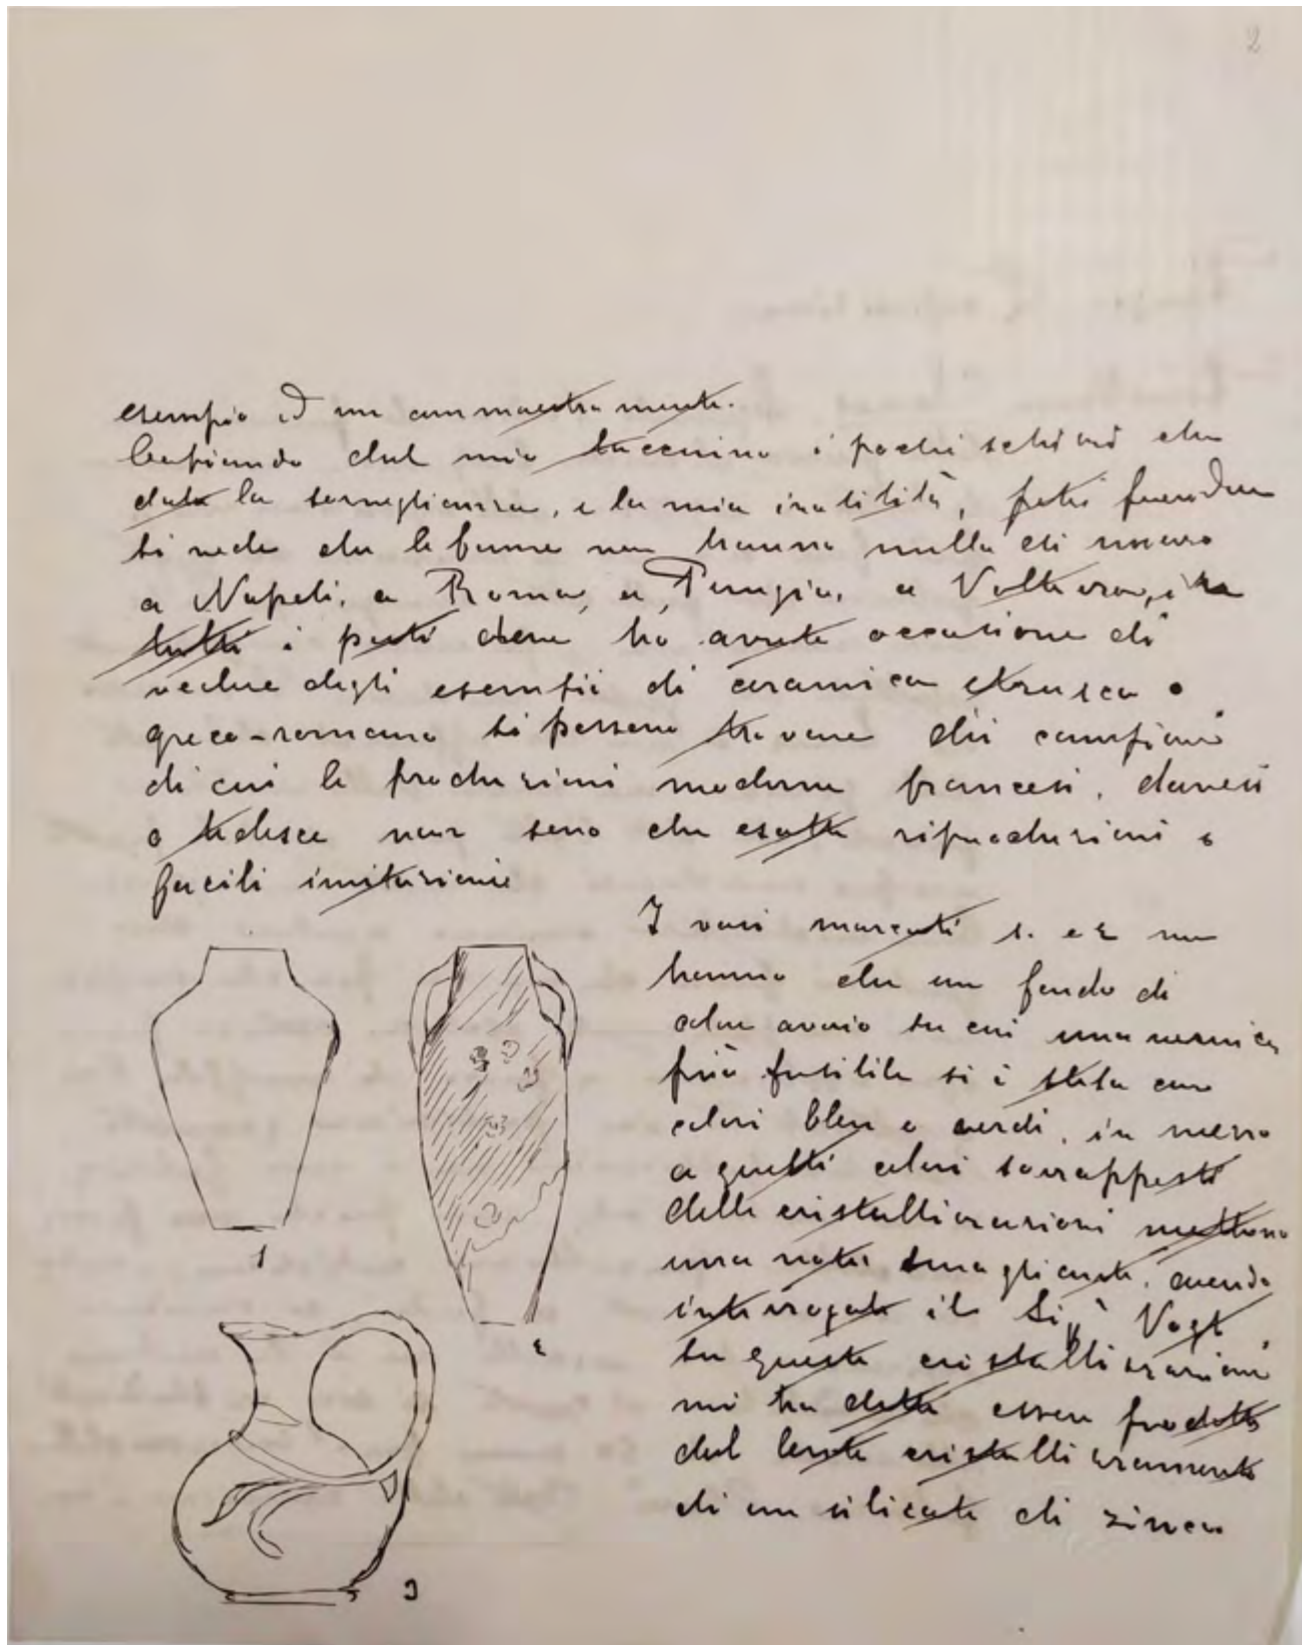 2
esempio ed un ammaestramento.
Copiando dal mio taccuino i pochi schizzi che
data la somiglianza, e la mia inabilità, potei prendere
si vede che le forme non hanno nulla di nuovo
a Napoli, a Roma, a Perugia, a Volterra, in
tutti i posti dove ho avuto occasione di
vedere degli esempii di ceramica etrusca o
greco-romana si possono trovare dei campioni
di cui le produzioni moderne francesi, danesi
o tedesce non sono che esatte riproduzioni o
facili imitazioni
I vasi marcati 1. e 2 non
hanno che un fondo di
color avorio su cui una vernice
più fusibile si è stesa con
colori bleu e verdi, in mezzo
a questi colori sovrapposti
delle cristallizzazioni mettono
una nota smagliante. avendo
interrogato il Sigr Vogt,
su queste cristallizzazioni
mi ha detto essere prodotte
dal lento cristallizzamento
di un silicato di zinco
1
2
3